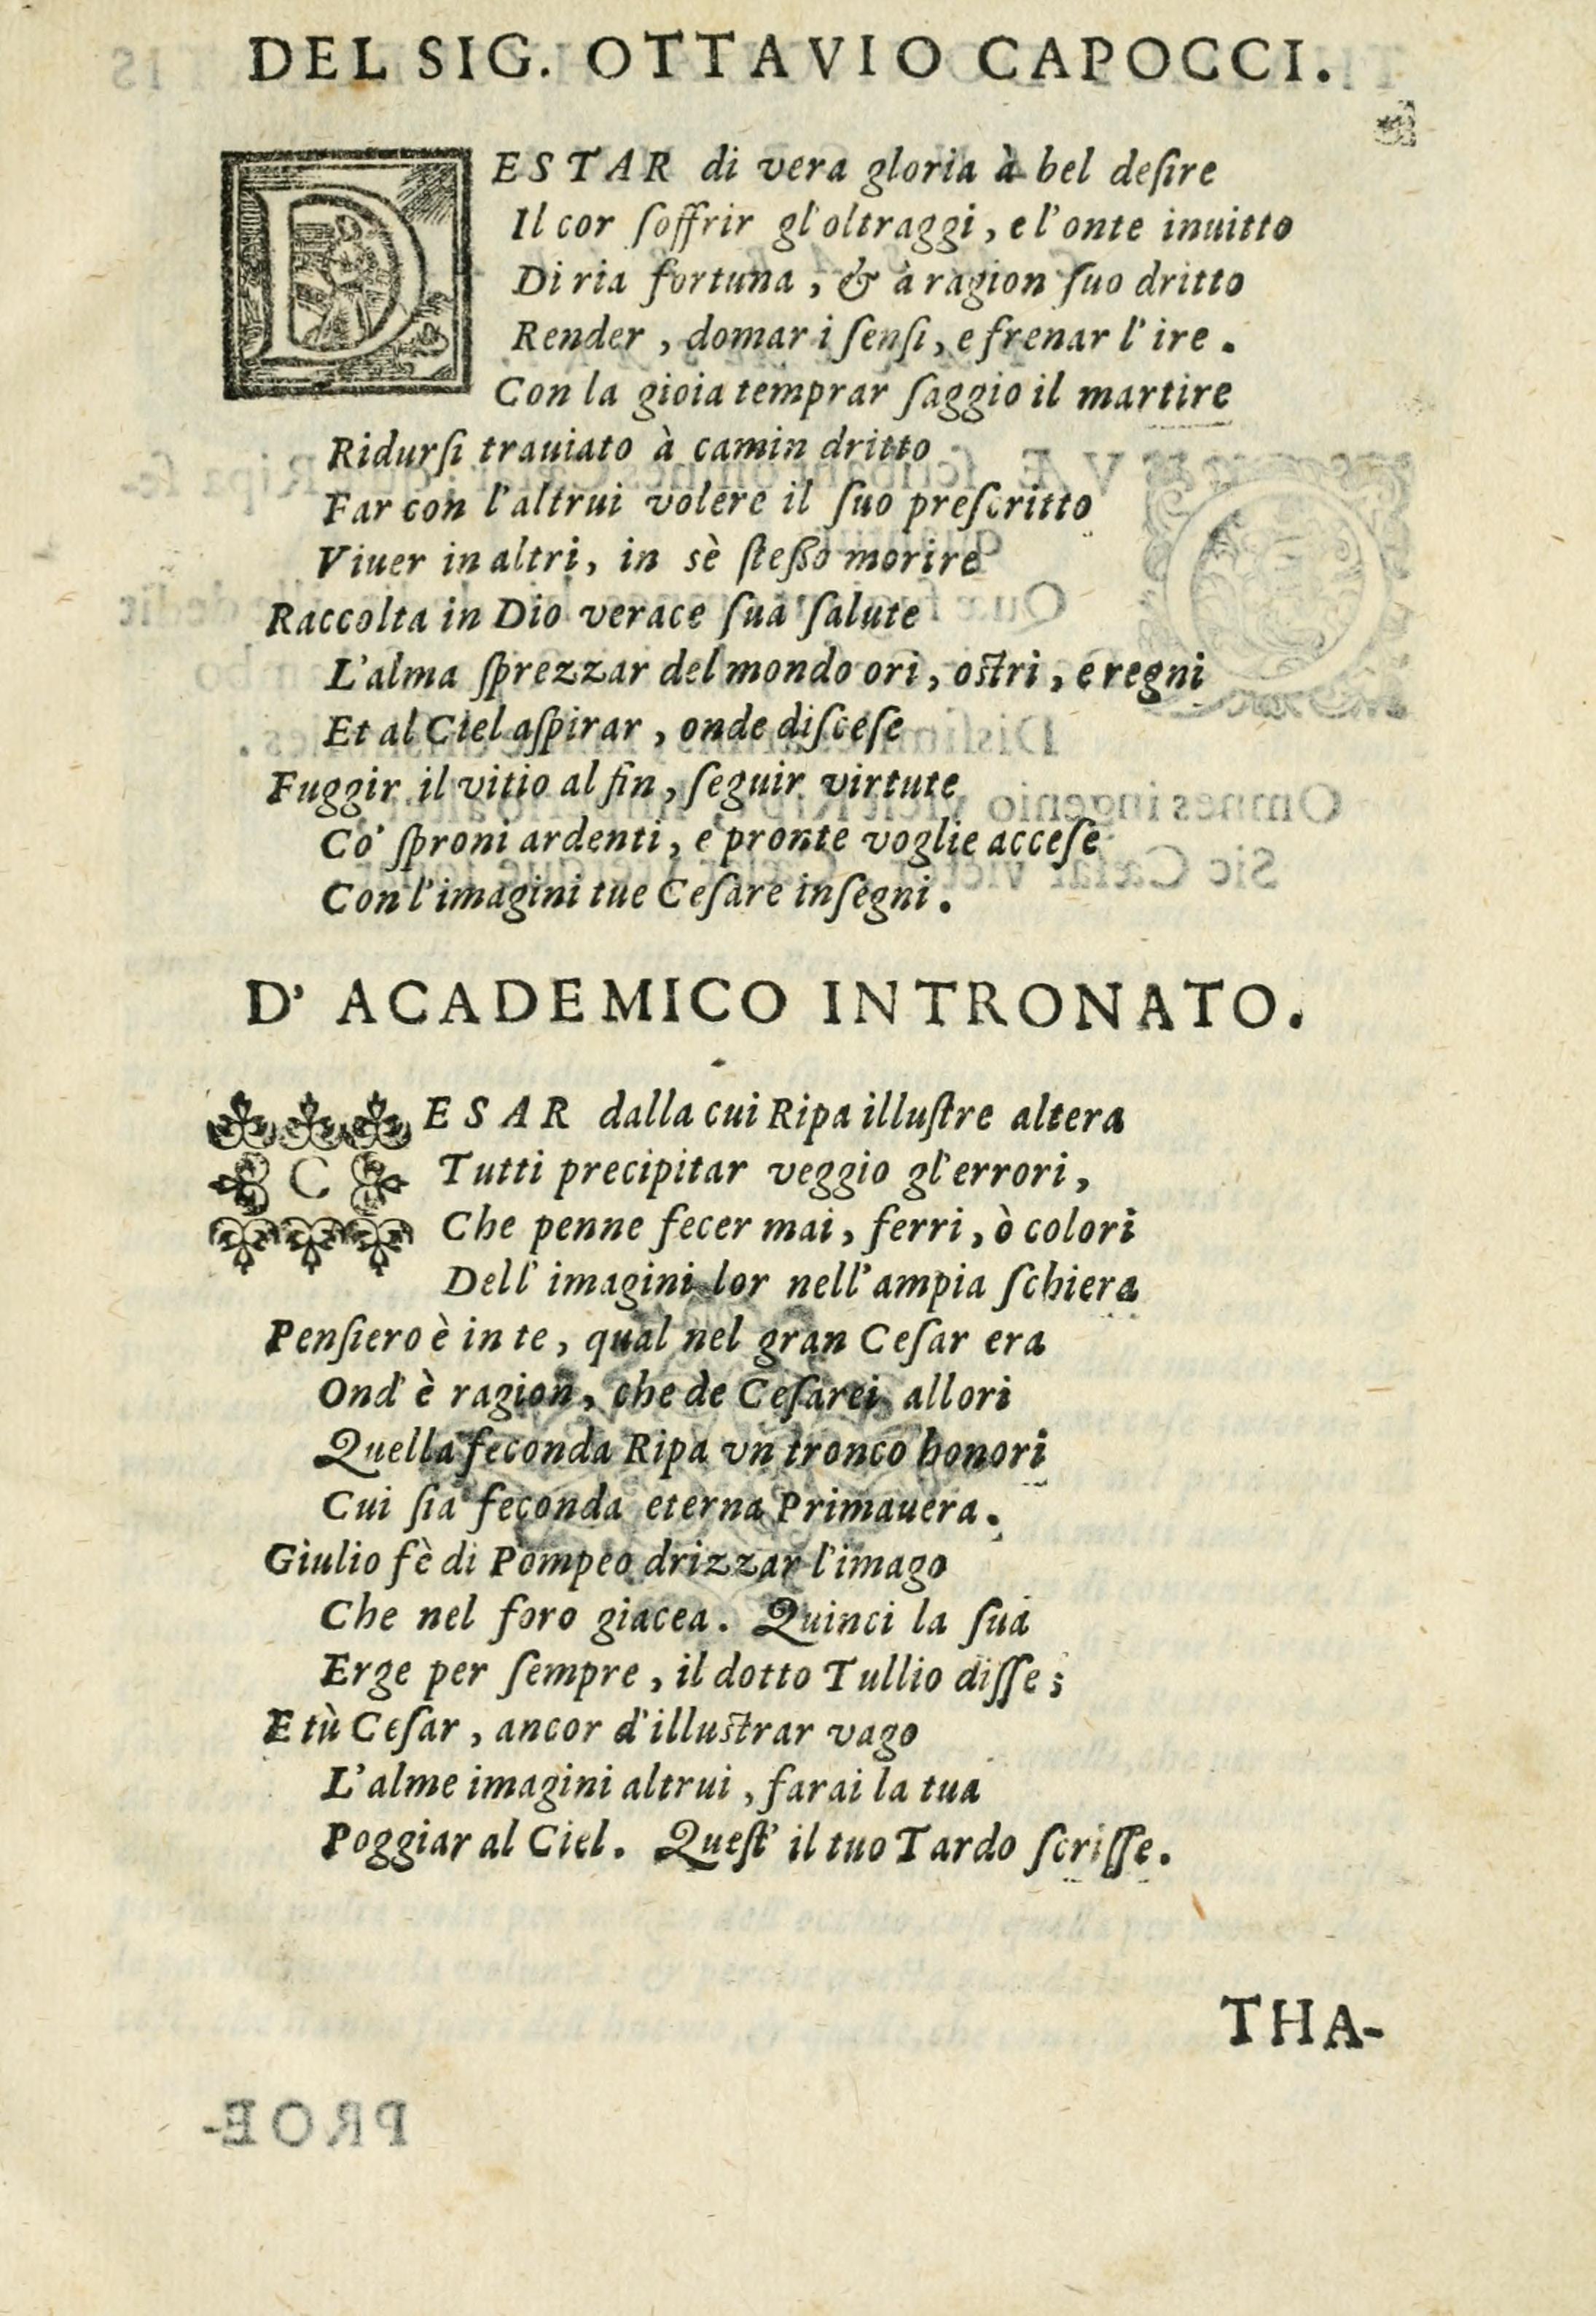 DEL SIG. OTTAVIO CAPOCCI.
DESTAR di vera gloria à bel deſire
Il cor ſoffrir gl'oltraggi, e l'onte inuitto
Di ria fortuna, & à ragion ſuo dritto
Render, domar i ſenſi, e frenar l'ire.
Con la gioia temprar ſaggio il martire
Ridurſi trauiato à camin dritto
Far con l'altrui volere il ſuo preſcritto
Viuer in altri, in sè ſteſſo morire
Raccolta in Dio verace ſua ſalute
L'alma ſprezzar del mondo ori, oſtri, e regni
Et al Ciel aſpirar, onde diſceſe
Fuggir il vitio al fin, ſeguir virtute
Co' ſproni ardenti, e pronte voglie acceſe
Con l'imagini tue Ceſare inſegni.
D' ACADEMICO INTRONATO.
CESAR dalla cui Ripa illuſtre altera
Tutti precipitar veggio gl'errori,
Che penne fecer mai, ferri, ò colori
Dell' imagini lor nell'ampia ſchiera
Penſiero è in te, qual nel gran Ceſar era
Ond' è ragion, che de Ceſarei allori
Quella feconda Ripa vn tronco honori
Cui ſia feconda eterna Primauera.
Giulio fè di Pompeo drizzar l'imago
Che nel foro giacea. Quinci la ſua
Erge per ſempre, il dotto Tullio diſſe;
E tù Ceſar, ancor d'illuſtrar vago
L'alme imagini altrui, farai la tua
Poggiar al Ciel. Queſt' il tuo Tardo ſcriſſe.
THA-
PROE-